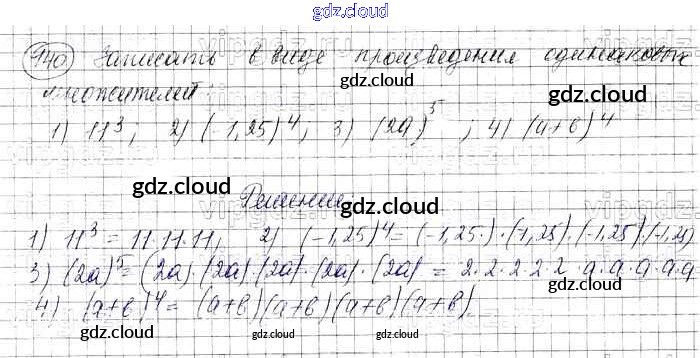 gdz.cloud
140 Записать в виде произведения одинаковых
gdz.cloud
множителей
gdz.cloud
1) 11³; 2) (-1,25)⁴; 3) (2a)⁵; 4) (a+b)⁴
gdz.cloud
gdz.cloud
Решение:
gdz.cloud
1) 11³ = 11·11·11; 2) (-1,25)⁴ = (-1,25·)·(-1,25)·(-1,25)·(-1,25)
3) (2a)⁵ = (2a)·(2a)·(2a)·(2a)·(2a) = 2·2·2·2·2·a·a·a·a·a
4) (a+b)⁴ = (a+b)(a+b)(a+b)(a+b)
gdz.cloud
gdz.cloud
gdz.cloud